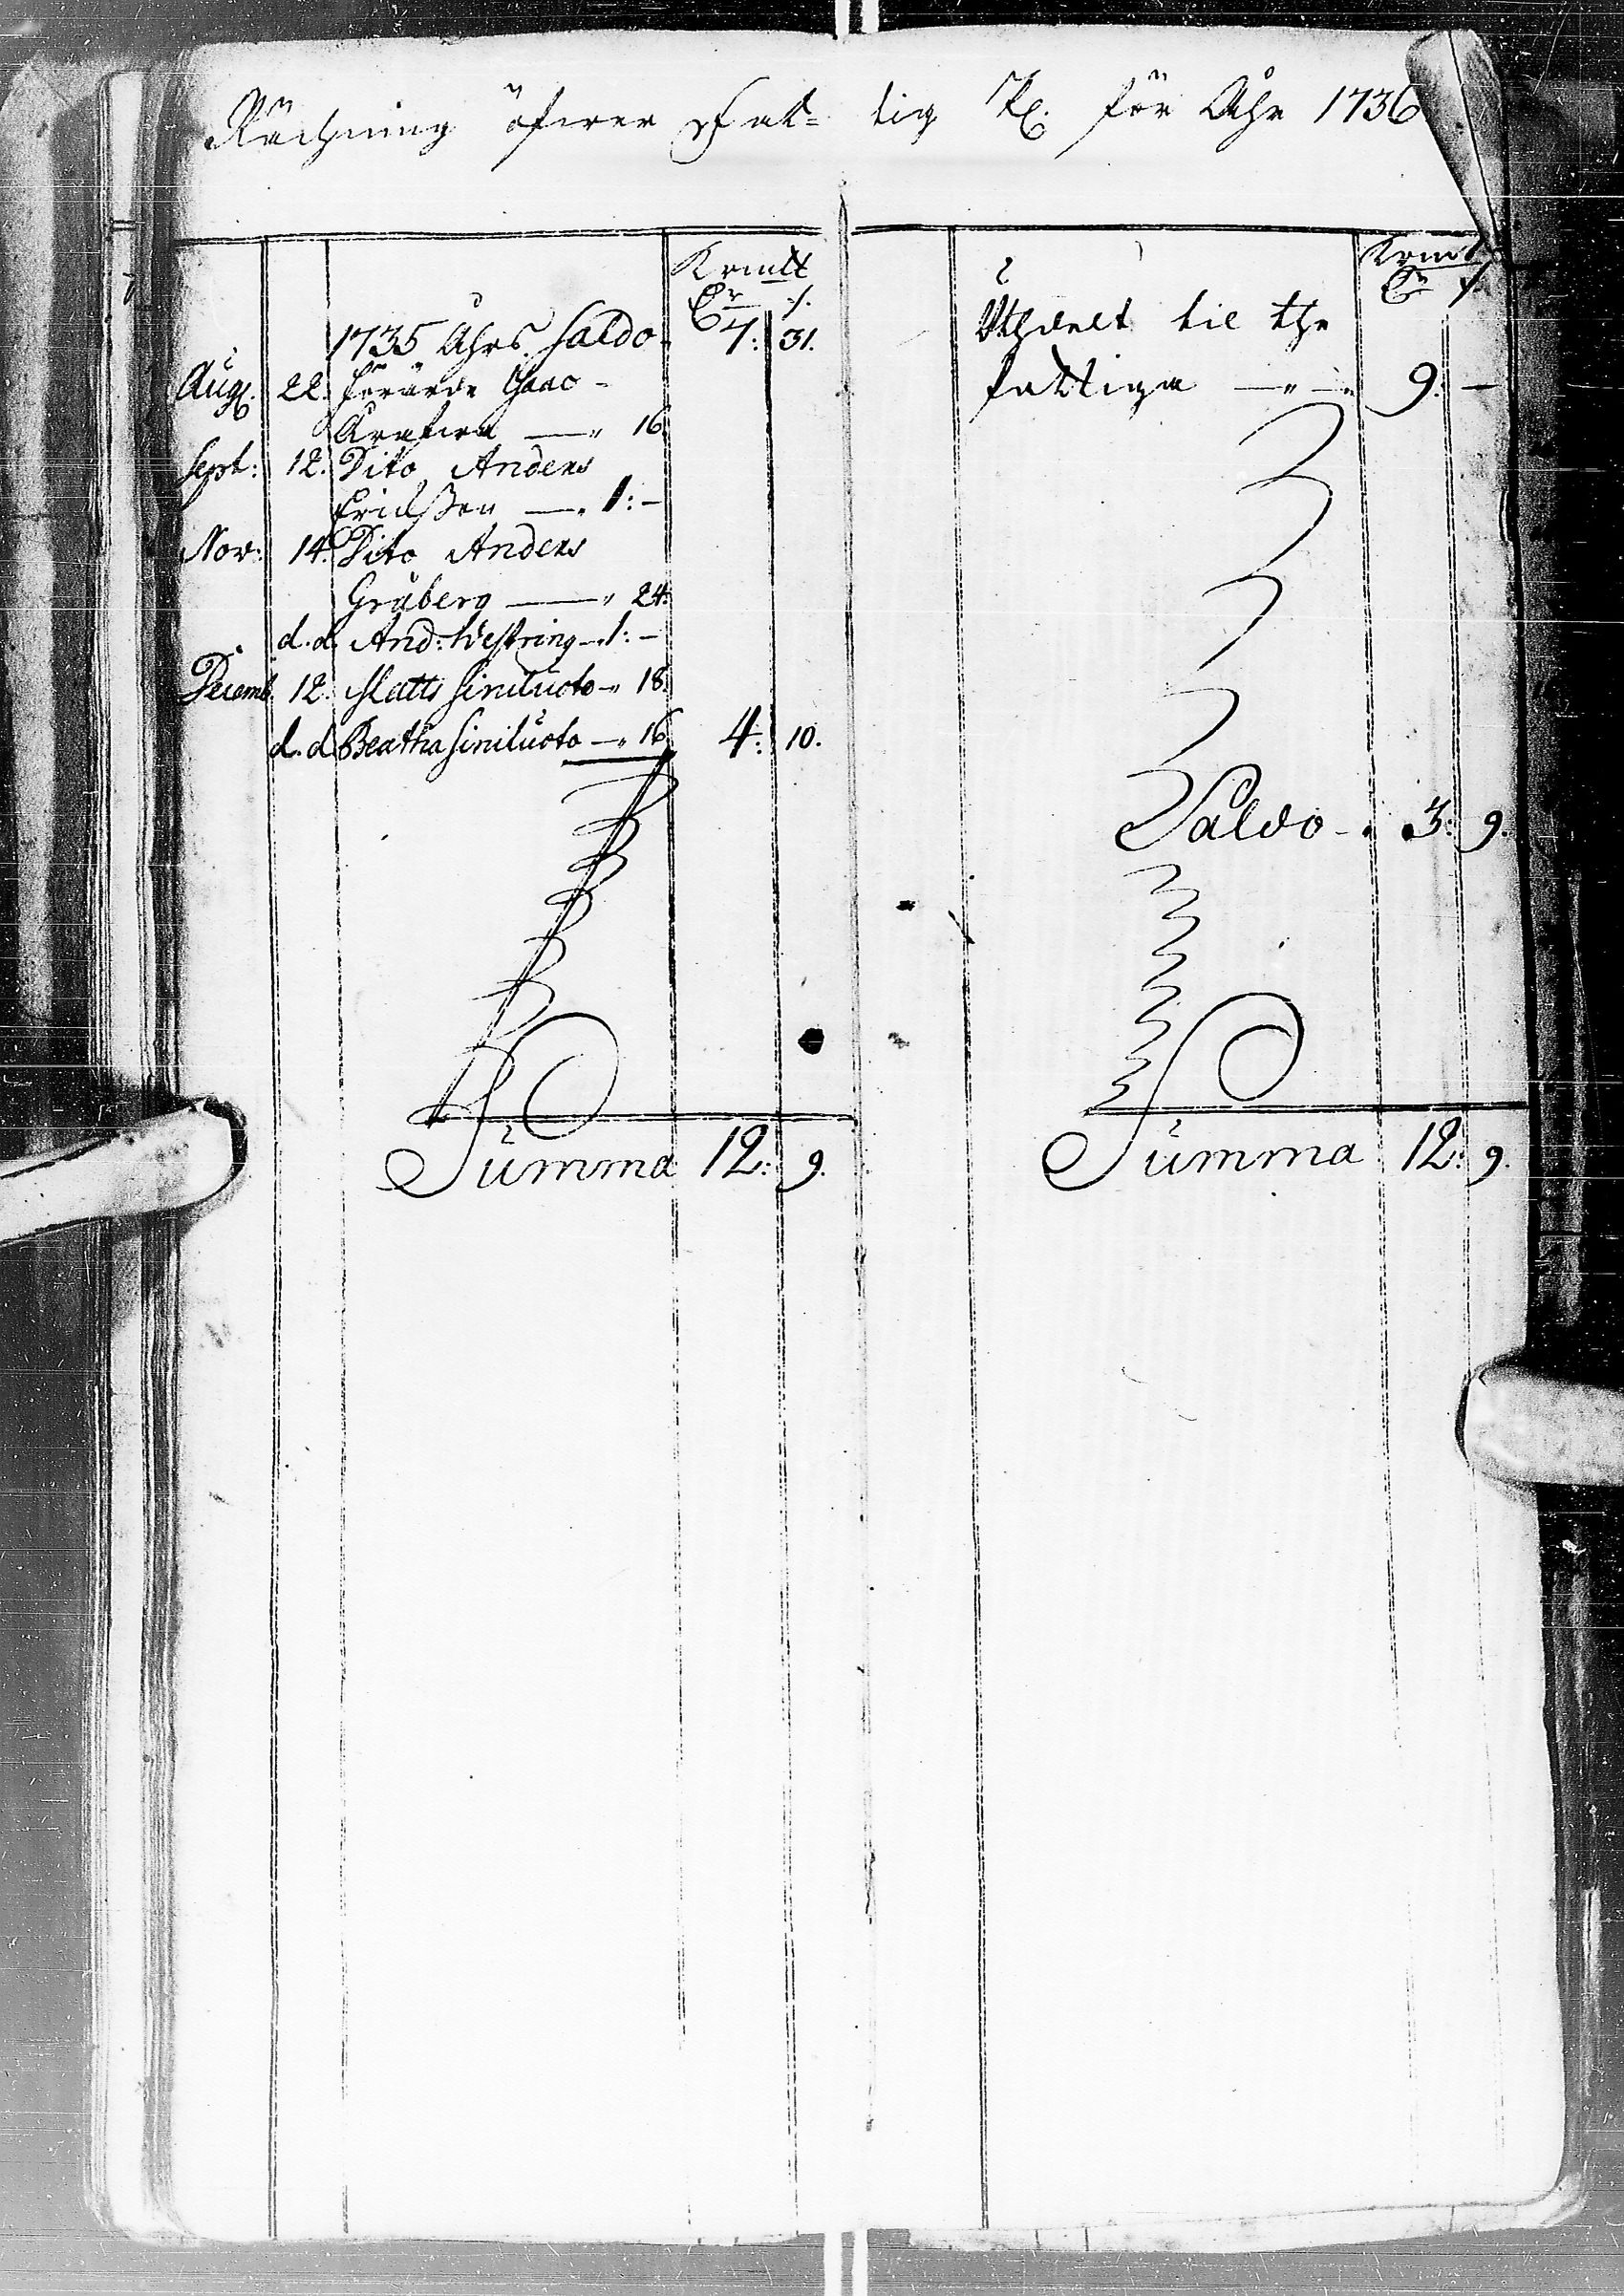 Rächning öfwer Fat= tig C. för Åhr 1736
Krmt
Dr ./.
1735 Åhrs. Saldo 7: 31.
Aug. 22. Förärde
16
Sept: 12. Dito Anders
Erichsson — 1: —
Nov: 14. Dito Anders
Gråberg — 24.
d. d. And: Westring — 1: —
Decemb 12. Matts Siniluoto — 18.
d. d. Beatha Siniluoto — 16 4: 10.
Summa 12: 9.
Krmt
Dr ./.
Uthdelt til the
fattiga — 9: —
Saldo — 3: 9.
Summa 12: 9.